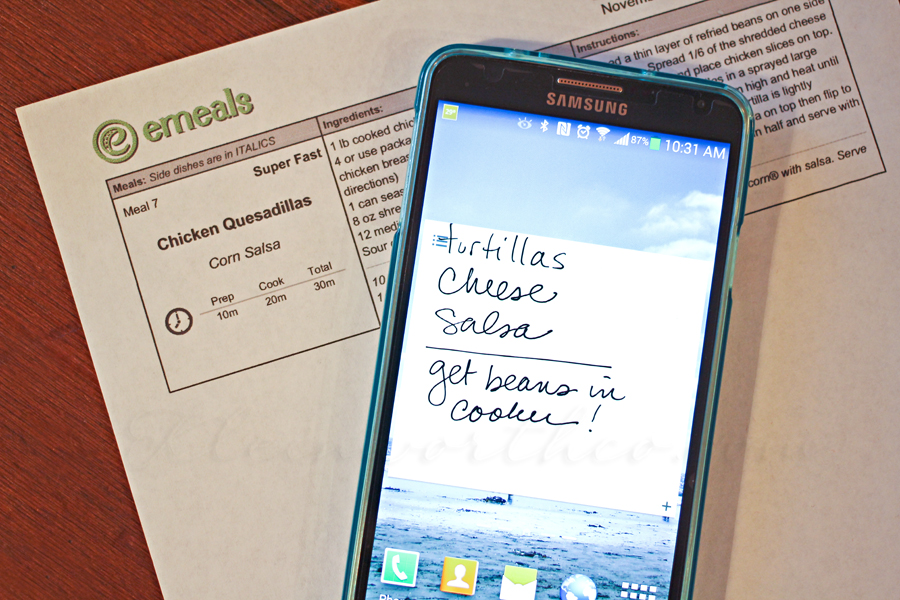 emeals
Novem
Meals: Side dishes are in ITALICS
Super Fast
Meal 7
Chicken Quesadillas
Corn Salsa
Prep Cook Total
10m 20m 30m
Ingredients:
1 lb cooked chic
4 or use packa
chicken breas
directions)
1 can seas
8 oz shre
12 medi
Sour
10
1
Instructions:
d a thin layer of refried beans on one side
Spread 1/6 of the shredded cheese
nd place chicken slices on top.
s in a sprayed large
high and heat until
rtilla is lightly
a on top then flip to
n half and serve with
corn® with salsa. Serve
SAMSUNG
87% 10:31 AM
tortillas
Cheese
Salsa
get beans in
cooker!